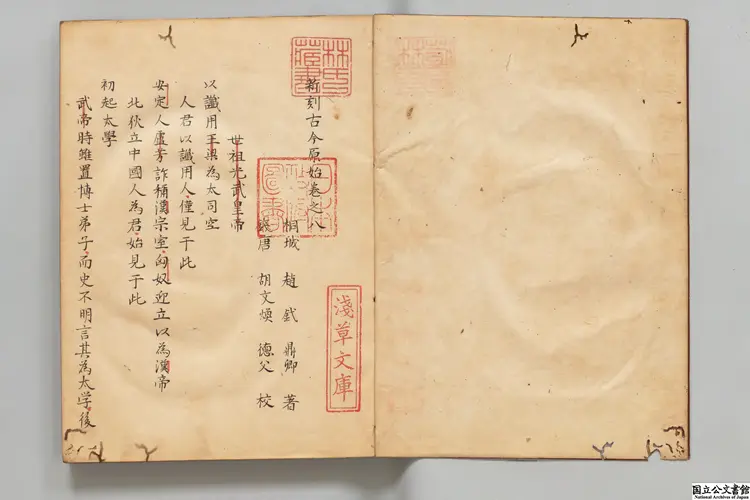 新刻古今原始卷之八
桐城 趙 釴 鼎卿 著
錢唐 胡文煥 德父 校
世祖光武皇帝
以讖用王梁為太司空
人君以讖用人僅見于此
安定人盧芳詐稱漢宗室匈奴迎立以為漢帝
北狄立中國人為君始見于此
初起太學
武帝時雖置博士弟子而史不明言其為太学後
林氏藏書
淺草文庫
国立公文書館
National Archives of Japan